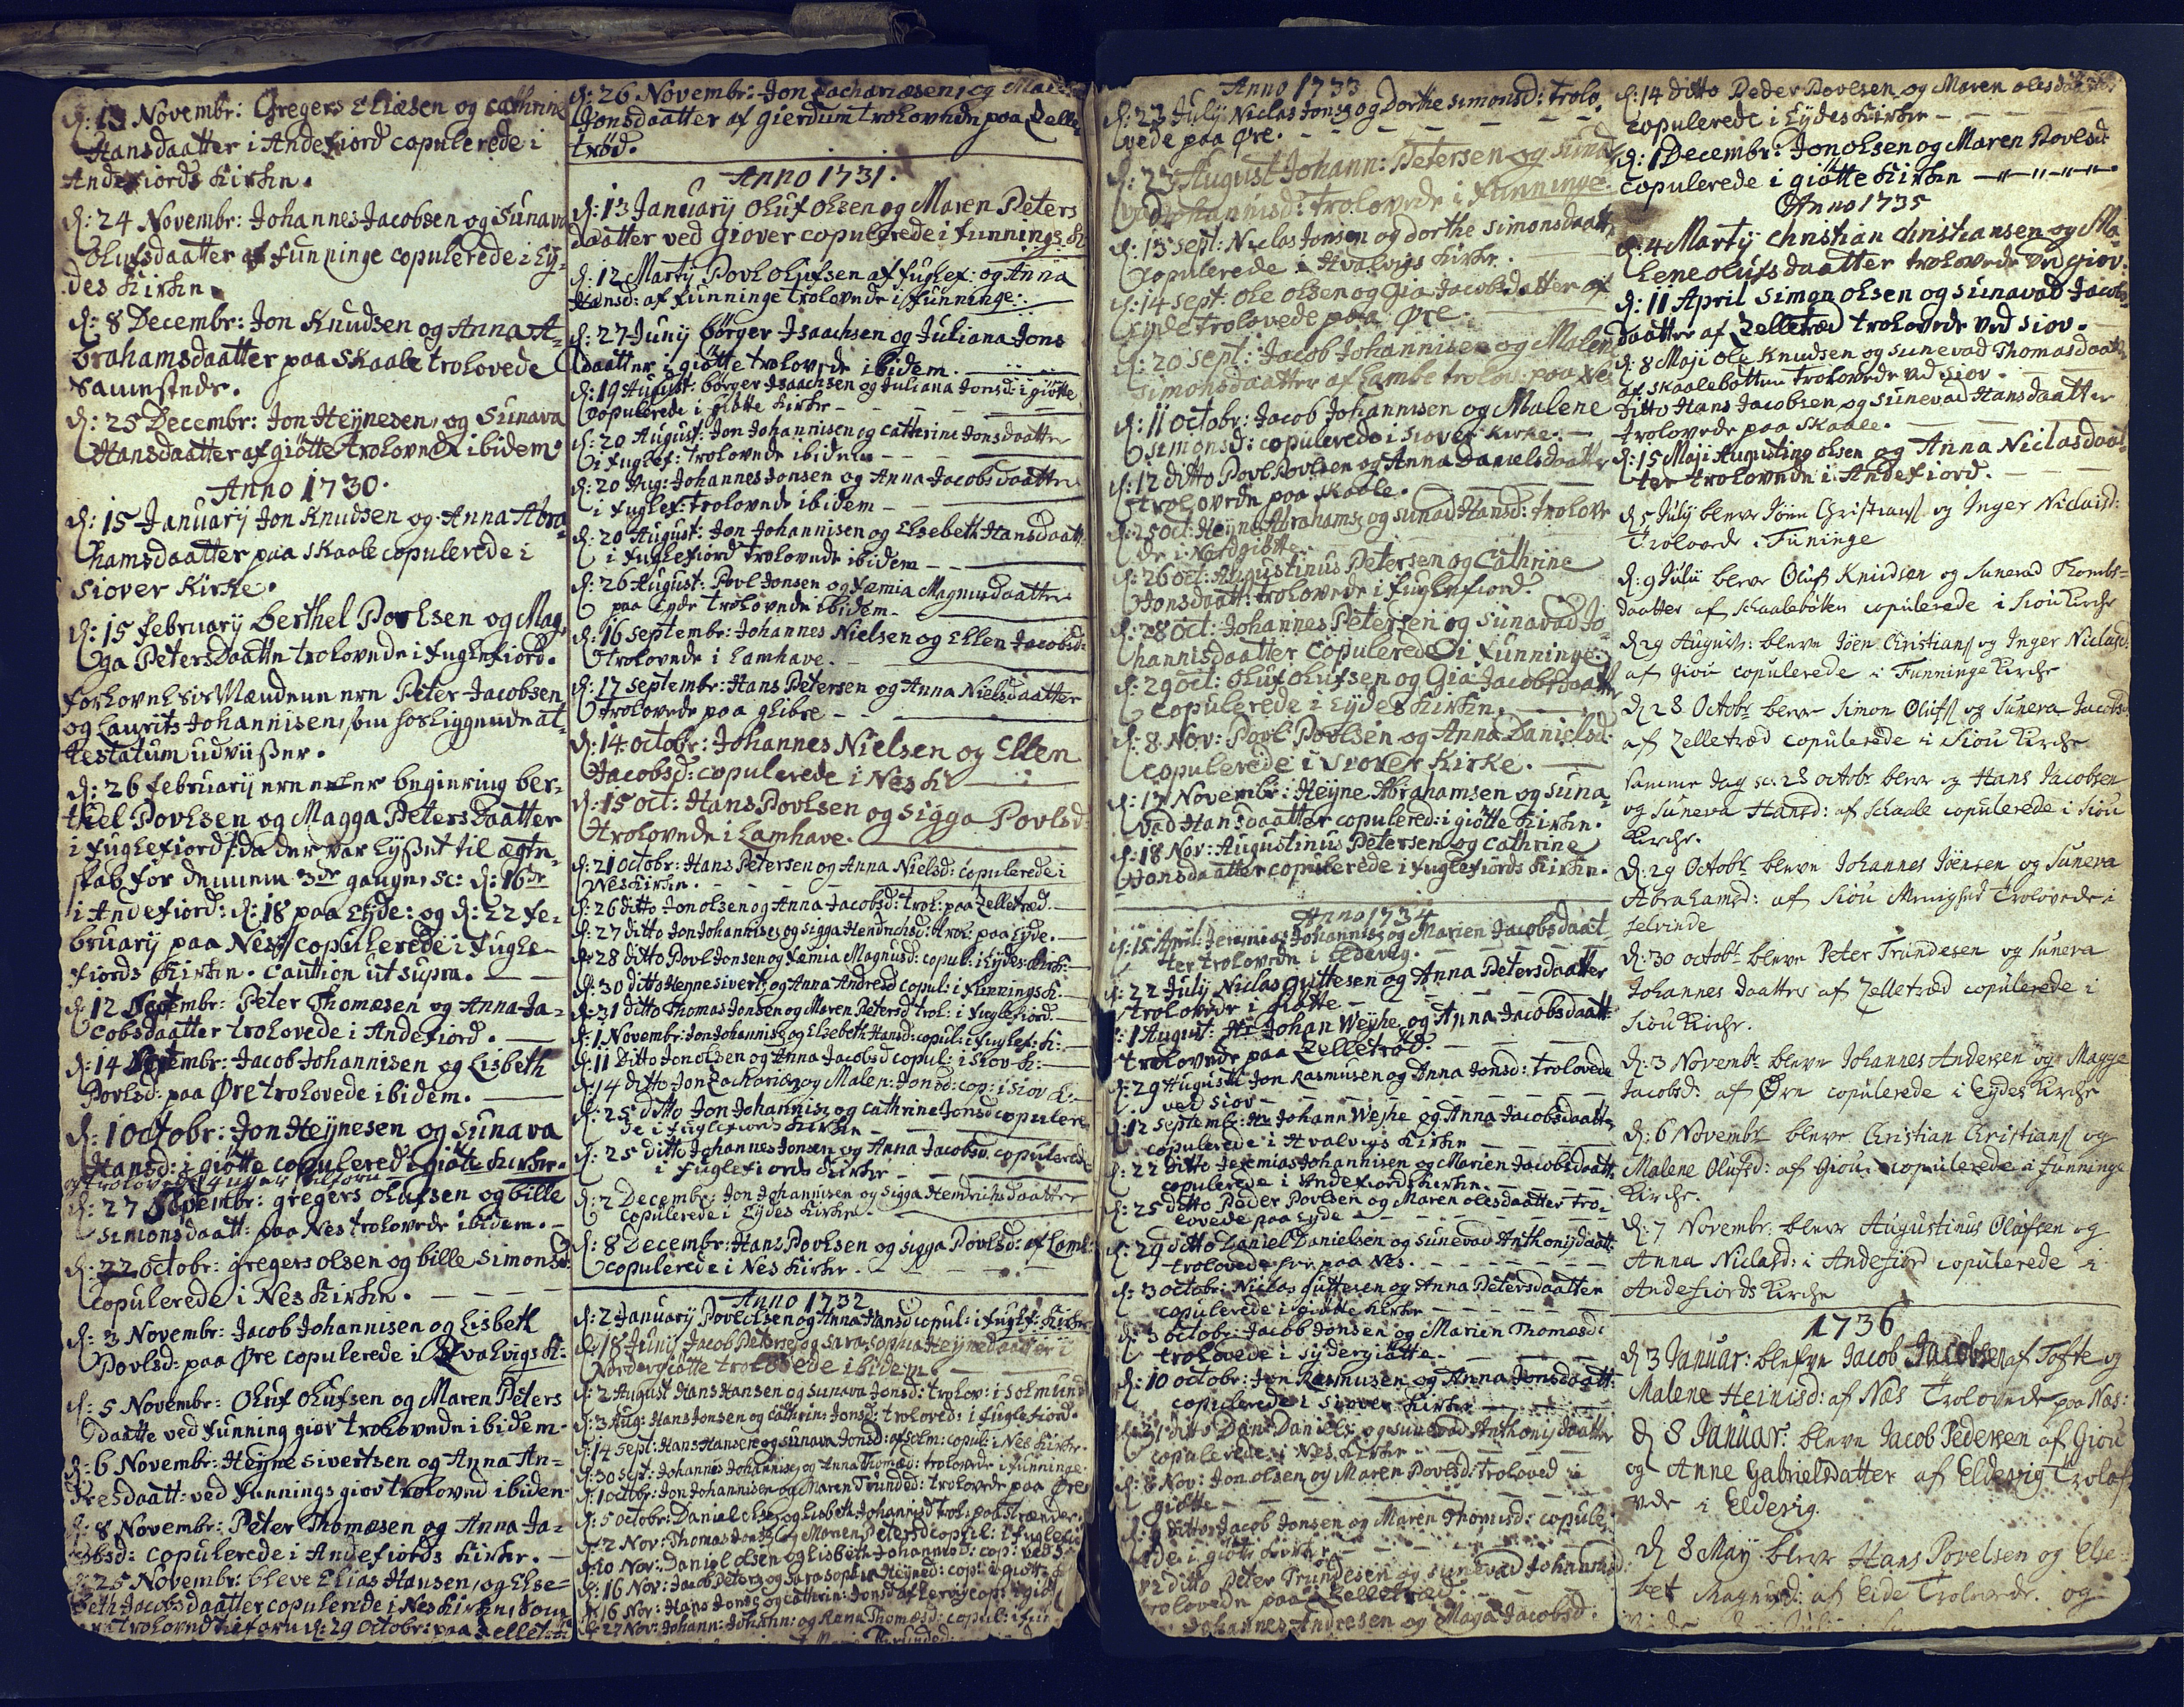 d: 13 Novembr: Gregers Eliæsen og Cathrine
Hansdaatter i Andefiord copulerede i
Andefiords Kirken.
d: 24 Novembr: Johannes Jacobsen og Sunava
Olufsdaatter af Funninge copulerede i Ey-
des Kirken.
d: 8 Decembr: Jon Knudsen og Anna A-
brahamsdaatter paa Skaale trolovede
Sammestede.
d: 25 Decembr: Jon Heÿnesen, og Sunava
Hansdaatter af giøtte trolovede ibidem.
Anno 1730.
d: 15 Januarÿ Jon Knudsen og Anna Abra
hamsdaatter paa Skaale copulerede i
Siover Kirke.
d: 15 februarÿ Berthel Povlsen og Mag,
ga Petersdaatter trolovede i fuglefiord.
forlovelsis Mændene ere Peter Jacobsen
og Laurits Johannisen, som hosliggende at-
testatum udviißer.
d: 26 februarÿ ere efter begiering ber-
thel Povlsen og Magga Petersdaatter
i fuglefiord /: da der var lyßet til ægte-
skab for dennem 3de gange, sc: d: 16de
i Andefiord: d: 18 paa Eÿde: og d: 22 fe-
bruarÿ paa Nes :/ copulerede i fugle-
fiords Kirken. caution ut supra.
d: 12 Septembr: Peter Thomæsen og Anna Ja-
cobsdaatter trolovede i Andefiord.
d: 14 Septembr: Jacob Johannisen og Lisbeth
Povlsd: paa Øre trolovede ibidem.
d: 1 Octobr: Jon Heÿnesen og Sunava
Hansd: i giøtte copulered i giøtte Kirke.
d: 27 Septembr: gregers Olufsen og bille
Simonsdaatt: paa Nes trolovede ibidem.
d: 22 octobr: gregers olsen og bille Simonsd:
copulerede i Nes Kirken.
d: 3 Novembr: Jacob Johannisen og Lisbeth
Povlsd: paa Øre copulerede i Hvalvigs K:
d: 5 Novembr: Oluf Olufsen og Maren Peters
daatte ved Funning giov trolovede ibidem
d: 6 Novembr: Heÿne Sivertsen og Anna An-
dresdaatt: ved Funnings giov trolovend ibiden
d: 8 Novembr: Peter Thomæsen og Anna Ja-
cobsd: copulerede i Andefiords Kirke.
d: 25 Novembr: bleve Elias Hansen, og Else-
beth Jacobsdaatter copulerede i Nes Kirken, som
trolovede tilforn d: 29 Octobr: paa Zellet:
d: 26 Novembr: Jon Zachariæsen, og Male
Jonsdaatter af gierdum trolovede paa Zelle
trød.
Anno 1731.
d: 13 Januarÿ Oluf Olsen og Maren Peters
daatter ved Giover copulerede i funnings K
d: 12 Martÿ Povl Olufsen af fuglef: og Anna
Hansd: af funninge trolovede i funninge.
d: 27 Junÿ børger Isaachsen og Juliana Jons
daatter i giøtte trolovede ibidem.
d: 19 August: børger Isaachsen og Juliana Jonsd: i giøtte
copulerede i giøtte Kirke
d: 20 August: Jon Johannisen og Cathrine Jonsdaatter
i fuglef: trolovede ibidem
d: 20 Aug: Johannes Jonsen og Anna Jacobsdaatter
i fuglef: trolovede ibidem
d: 20 August: Jon Johannisen og Elsebeth Hansdaatt
i fuglefiord trolovede ibidem
d: 26 August: Povl Jonsen og Fæmia Magnusdaatter
paa Eÿde trolovede ibidem
d: 16 Septembr: Johannes Nielsen og Ellen Jacobsd:
trolovede i Lamhave.
d: 17 Septembr: Hans Petersen og Anna Nielsdaatter
trolovede paa glibre
d: 14 octobr: Johannes Nielsen og Ellen
Jacobsd: copulerede i Nes K
d: 15 oct: Hans Povlsen og Sigga Povlsd:
trolovede i Lamhave.
d: 21 octobr: Hans Petersen og Anna Nielsd: copulerede i
Nes Kirken.
d: 26 ditto Jon olsen og Anna Jacobsd: trol: paa Zelletræd.
d: 27 ditto Jon Johannisen og Sigga Hendrichsd: trol: paa Eÿde.
d: 28 ditto Povl Jonsen og Fæmia Magnusd: copul: i Eÿdes Kirk:
d: 30 ditto Heÿne Sivert: og Anna Andresd copul: i funnings K:
d: 31 ditto Thomas Jonsen og Maren Petersd trol: i fuglefiord.
d: 1 Novembr: Jon Johannisen og Elsebeth Hansd: copul: i fuglef: K:
d: 11 Ditto Jon Olsen og Anna Jacobsd copul: i Siov K:
d: 14 ditto Jon Zachariesen og Malen: Jonsd: cop: i Siov K:
d: 25 ditto Jon Johannisen og Cathrine Jonsd copulere
de i fuglefiords Kirken
d: 25 ditto Johannes Jonsen og Anna Jacobsd. copulered
i fuglefiords Kirke
d: 2 Decembr: Jon Johannisen og Sigga Hendrichsdaatter
copulerede i Eÿdes Kirke.
d: 8 Decembr: Hans Povlsen og Sigga Povlsd: af Lamh:
copulerede i Nes Kirke.
Anno 1732
d: 2 Januarÿ Povl Olsen og Anna Hansd copul: i fuglf: Kirke
d: 18 Junÿ Jacob Petersen og Sara Sophia Heÿnedaatter i
Nordergiøtte trolovede ibidem
d: 2 August Hans Hansen og Sunava Jonsd: trolov: i Solmund
d: 3 Aug: Hans Jonsen og Cathrin: Jonsd: troloved: i fuglefiord.
d: 14 Sept: Hans Hansen og Sunava Jonsd: af Solm: copul: i Nes Kirke
d: 30 Sept: Johannes Johannisen og Anna Thomæd: trolovede i funninge
d: 1 octobr: Jon Johannisen og Maren Trundsd: trolovede paa Øre
d: 5 octobr: Daniel Olsen og Lisbeth Johannisd trol: paa Strænder.
d: 2 Nov: Thomas Jonsen og Maren Petersd copul: i fuglefio
d: 10 Nov: Daniel olsen og Lisbeth Johannisd: cop: ved S
d: 16 Nov: Jacob Peters: og Sara Sophia Heÿned: cop: i giøt
d: 16 Nov: Hans Jons: og Cathrin: Jonsd af Lervig cop: i giøt
d: 27 Nov: Johann: Johann: og Anna Thomæsd: copul: i fun
Anno 1733
d: 23 Julÿ Niclas Jons: og Dorthe Simonsd: trolo,
vede paa Øre.
d: 23 August Johann: Petersen og Suna
vad Johannisd: trolovede i funninge.
d: 13 Sept: Niclas Jonsen og Dorthe Simonsdaatt
copulerede i Hvalvigs Kirke.
d: 14 Sept: Ole Olsen og Gia Jacobsdatter af
Eÿde trolovede paa Øre.
d: 20 Sept: Jacob Johannisen og Malen
Simonsdaatter af Lambe trolov: paa Ne
d: 11 Octobr: Jacob Johannisen og Malene
Simonsd: copulerede i Siover Kirke.
d: 12 ditto Povl Povlsen og Anna Danielsdaatter
trolovede paa Skaale.
d: 25 Oct: Heÿne Abrahams: og Sunad Hansd: trolove
de i Nordgiøtte
d: 26 oct: Augustinus Petersen og Cathrine
Jonsdaatt: trolovede i fuglefiord.
d: 28 Oct: Johannes Petersen og Sunavad Jo-
hannisdaatter copulerede i funninge.
d: 29 oct: Oluf Olufsen og Gia Jacobsdaatt
copulerede i Eÿdes Kirken.
d: 8 Nov: Povl Povlsen og Anna Danielsd
copulerede i Siover Kirke.
d: 17 Novembr: Heÿne Abrahamsen og Suna-
vad Hansdaatter copulered: i giøtte Kirken.
d: 18 Nov: Augustinus Petersen og Cathrine
Jonsdaatter copulerede i fuglefiords Kirken.
Anno 1734
d: 15 April: Jeremias Johannis: og Marien Jacobsdaat
ter trolovede i Eldevig.
d: 22 Julÿ Niclas Guttesen og Anna Petersdaatter
trolovede i giøtte
d: 1 August: Hr Johan Weÿhe og Anna Jacobsdaatt
trolovede paa Zelletrød.
d: 29 Augusti Jon Rasmusen og Anna Jonsd: trolovede
ved Siov
d: 12 Septembr: Hr Johann Weÿhe og Anna Jacobsdaatt
copulerede i Hvalvigs Kirken
d: 22 ditto Jeremias Johannisen og Marien Jacobsdaatt
copulerede i Andefiords Kirken.
d: 25 ditto Peder Povlsen og Maren Olesdaatter tro-
lovede paa Eÿde
d: 29 ditto Daniel Danielsen og Sunevad Anthonÿdaatt
trolovede her paa Nes.
d: 3 octobr: Niclas Guttesen og Anna Petersdaatter
copulerede i giøtte Kirke
d: 3 octobr: Jacob Jonsen og Marien Thomasd:
trolovede i Sÿdergiøtte.
d: 10 octobr: Jon Rasmusen og Anna Jonsdaatt:
copulerede i Siover Kirke
d: 31 ditto Dan: Daniels: og Sunevad Anthonÿdaatter
copulerede i Nes Kirke
d: 8 Nov: Jon olsen og Maren Povlsd: troloved i
giøtte
ditto Jacob Jonsen og Maren Thomasd: copule
rede i giøtte Kirke
ditto Peter Trundesen og Sunevad Johannisd
trolovede paa Zelletræd
Johannes Andresen og Maga Jacobsd:
d: 14 ditto Peder Povlsen og Maren olesdaatter
copulerede i Eÿdes Kirke
d: 1 Decembr: Jon olsen og Maren Povlsd
copulerede i giøtte Kirken
Anno 1735
d: 4 Martÿ Christian Christiansen og Ma-
lene olufsdaatter trolovede ved giov:
d: 11 April Simon olsen og Sunavad Jacobs
daatter af Zelletræd trolovede ved Siov.
d: 8 Maji Ole Knudsen og Sunevad Thomasdaatt
af Skaalebotten trolovede ved Siov.
ditto Hans Jacobsen og Sunevad Hansdaatter
trolovede paa Skaale.
d: 15 Maji Augustino olsen og Anna Niclasdaat
ter trolovede i Andefiord.
d 5 Julÿ bleve Jöen Christians og Inger Niclasd:
Trolovede i Funinge
d: 9 Julii bleve Oluf Knudsen og Sunevad Thomas-
daatter af Schaalebötten copulerede i Siou Kirche
d 29 August: bleve Jöen Christians og Inger Niclasd:
af Giou copulerede i Funninge Kirche
d 28 Octobr bleve Simon Olufs og Suneva Jacobs
af Zelletræd copulerede i Siou Kirche
samme dag sc: 28 octobr bleve og Hans Jacobsen
og Suneva Hansd: af Schaale copulerede i Siou
Kirche.
d: 29 Octobr bleve Johannes Jöensen og Suneva
Abrahamsd: af Siou Menighed Trolovede i
Selvinde
d: 30 octobr bleve Peter Trundesen og Suneva
Johannes daatter af Zelletræd copulerede i
Siou Kirche.
d: 3 Novembr bleve Johannes Andersen og Magge
Jacobsd: af Øre copulerede i Eydes Kirche
d: 6 Novembr bleve Christian Christians og
Malene Olufsd: af Giou copulerede i funninge
Kirche.
d: 7 Novembr: bleve Augustinus Olufsen og
Anna Niclasd: i Andefiord copulerede i
Andefiords Kirche
1736
d 3 Januar: blefve Jacob Jacobsen af Tofte og
Malene Heinisd: af Næs Trolovede paa Næs:
d 8 Januar: bleve Jacob Pedersen af Giou
og Anne Gabrielsdatter af Eldevig Trolof
vede i Eldevig.
d 8 May bleve Hans Povelsen og Else-
bet Magnusd: af Eide Trolovede. og